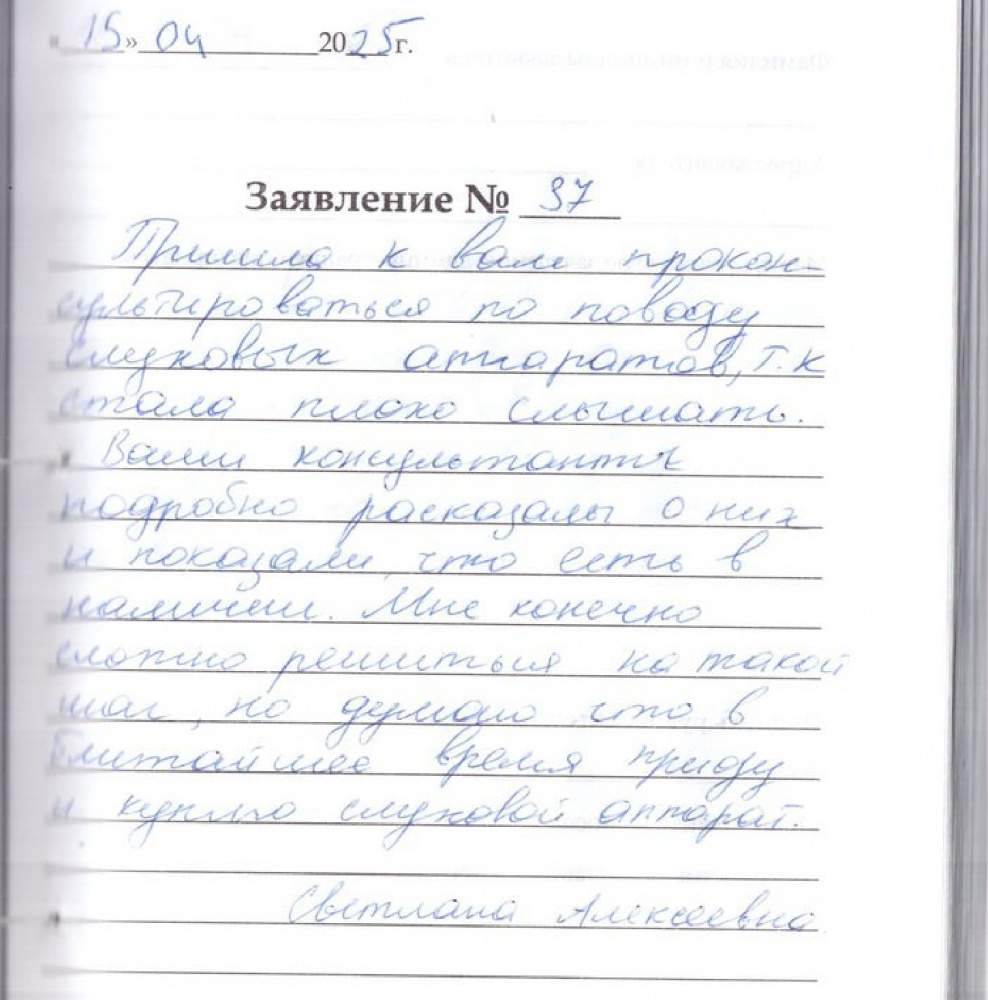 «15» 04 2025 г.
Заявление № 37
Пришла к вам прокон-
сультироваться по поводу
слуховых аппаратов, т.к
стала плохо слышать.
Ваши консультанты
подробно расказалы о них
и показали, что есть в
наличии. Мне конечно
сложно решиться на такой
шаг, но думаю что в
ближайшее время приду
и куплю слуховой аппарат.
Светлана Алексеевна